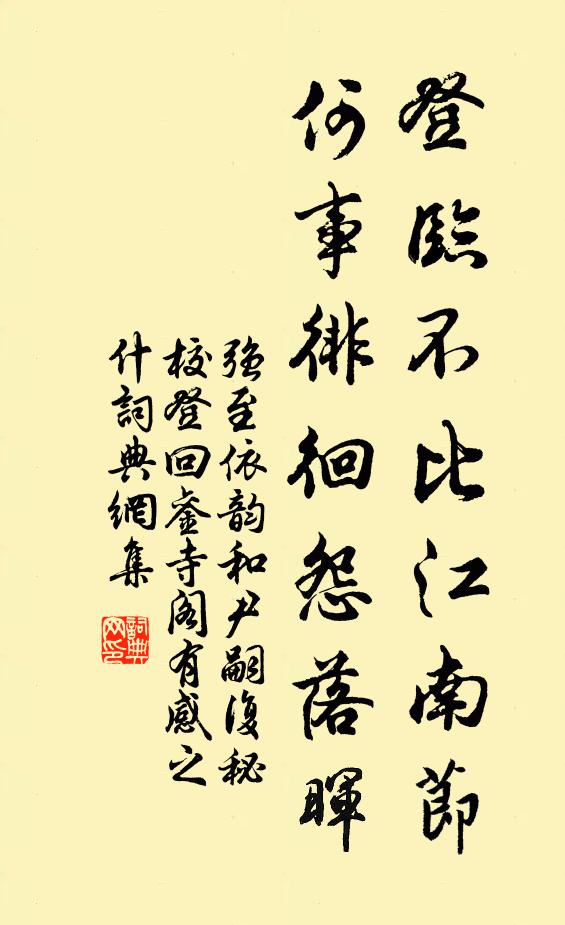 登臨不比江南節
何事徘徊怨落暉
強至依韵和尹嗣復秘
校登回鑾寺閣有感之
什詞典網集
詞典网印